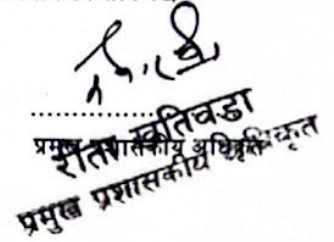 ....................
प्रमुख प्रशासकीय अधिकृत
खतिवडा
प्रमुख प्रशासकीय अधिकृत